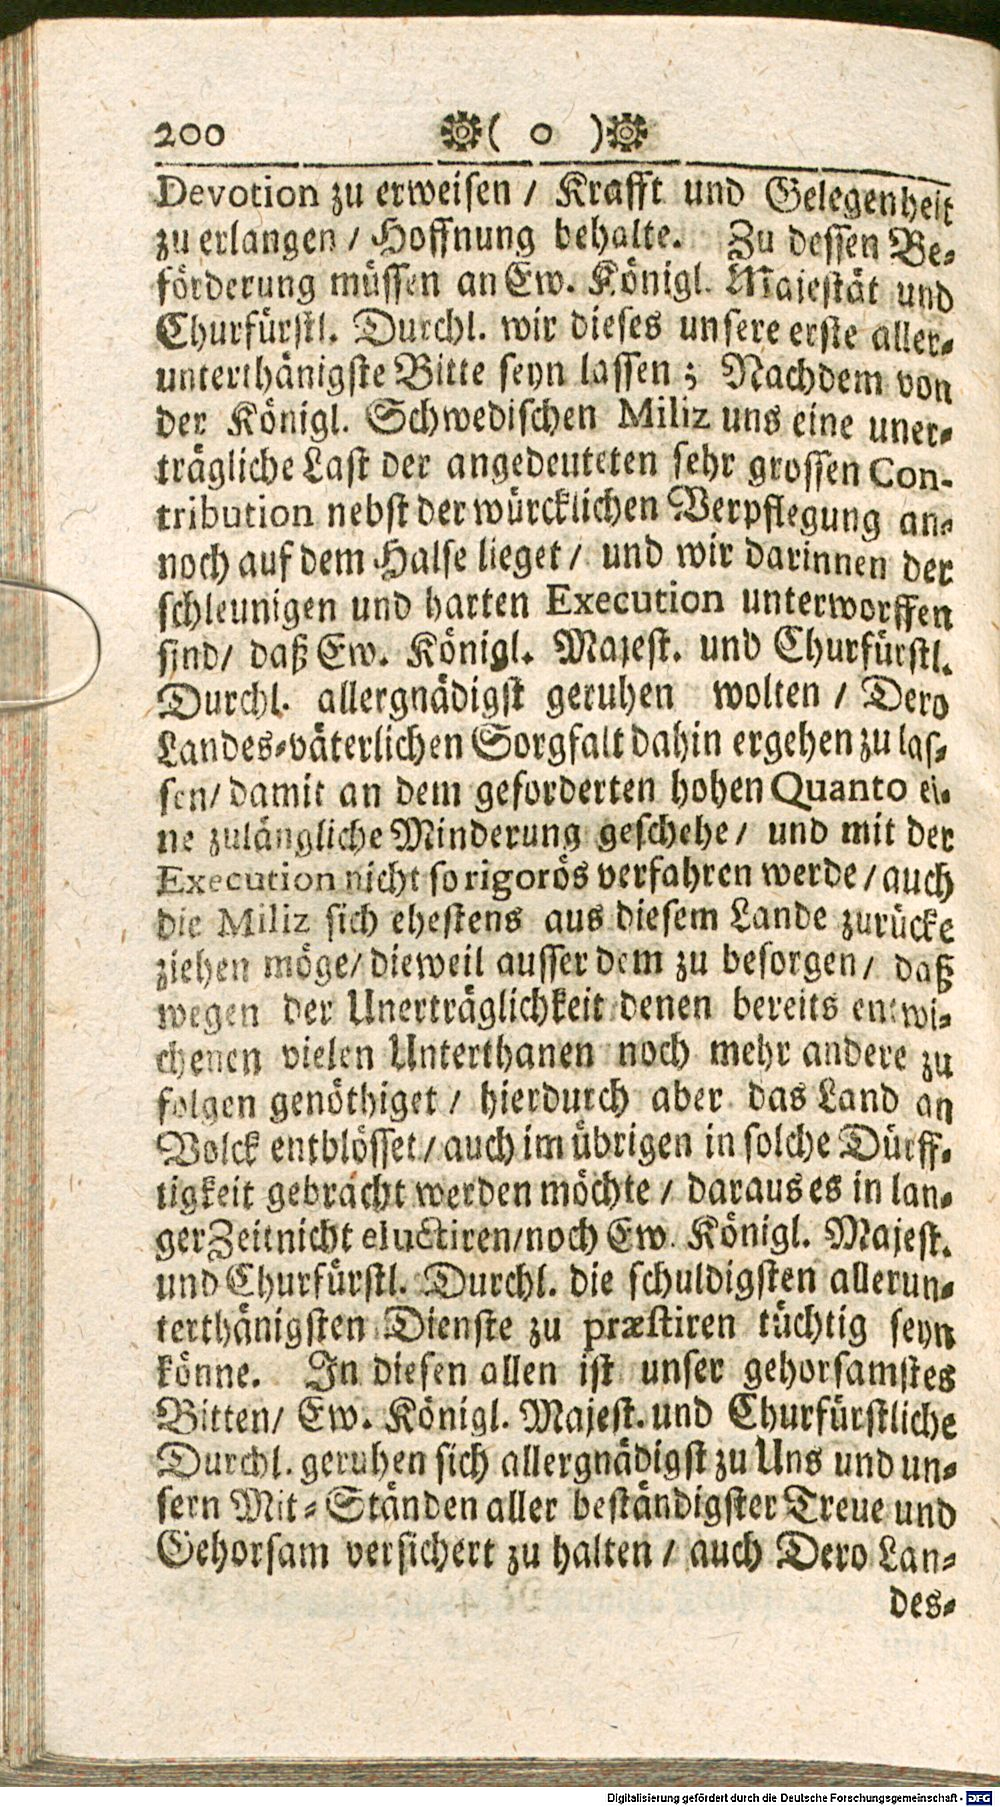 200 ( o )
Devotion zu erweisen / Krafft und Gelegenheit
zu erlangen / Hoffnung behalte. Zu dessen Be-
förderung müssen an Ew. Königl. Majestät und
Churfürstl. Durchl. wir dieses unsere erste aller-
unterthänigste Bitte seyn lassen ; Nachdem von
der Königl. Schwedischen Miliz uns eine uner-
trägliche Last der angedeuteten sehr grossen Con-
tribution nebst der würcklichen Verpflegung an-
noch auf dem Halse lieget / und wir darinnen der
schleunigen und harten Execution unterworffen
sind / daß Ew. Königl. Majest. und Churfürstl.
Durchl. allergnädigst geruhen wolten / Dero
Landes-väterlichen Sorgfalt dahin ergehen zu las-
sen / damit an dem geforderten hohen Quanto ei-
ne zulängliche Minderung geschehe / und mit der
Execution nicht so rigorös verfahren werde / auch
die Miliz sich ehestens aus diesem Lande zurücke
ziehen möge / dieweil ausser dem zu besorgen / daß
wegen der Unerträglichkeit denen bereits entwi-
chenen vielen Unterthanen noch mehr andere zu
folgen genöthiget / hierdurch aber das Land an
Volck entblösset / auch im übrigen in solche Dürff-
tigkeit gebracht werden möchte / daraus es in lan-
ger Zeit nicht eluctiren / noch Ew. Königl. Majest.
und Churfürstl. Durchl. die schuldigsten allerun-
terthänigsten Dienste zu præstiren tüchtig seyn
könne. In diesen allen ist unser gehorsamstes
Bitten / Ew. Königl. Majest. und Churfürstliche
Durchl. geruhen sich allergnädigst zu Uns und un-
sern Mit-Ständen aller beständigster Treue und
Gehorsam versichert zu halten / auch Dero Lan-
des-
Digitalisierung gefördert durch die Deutsche Forschungsgemeinschaft - DFG